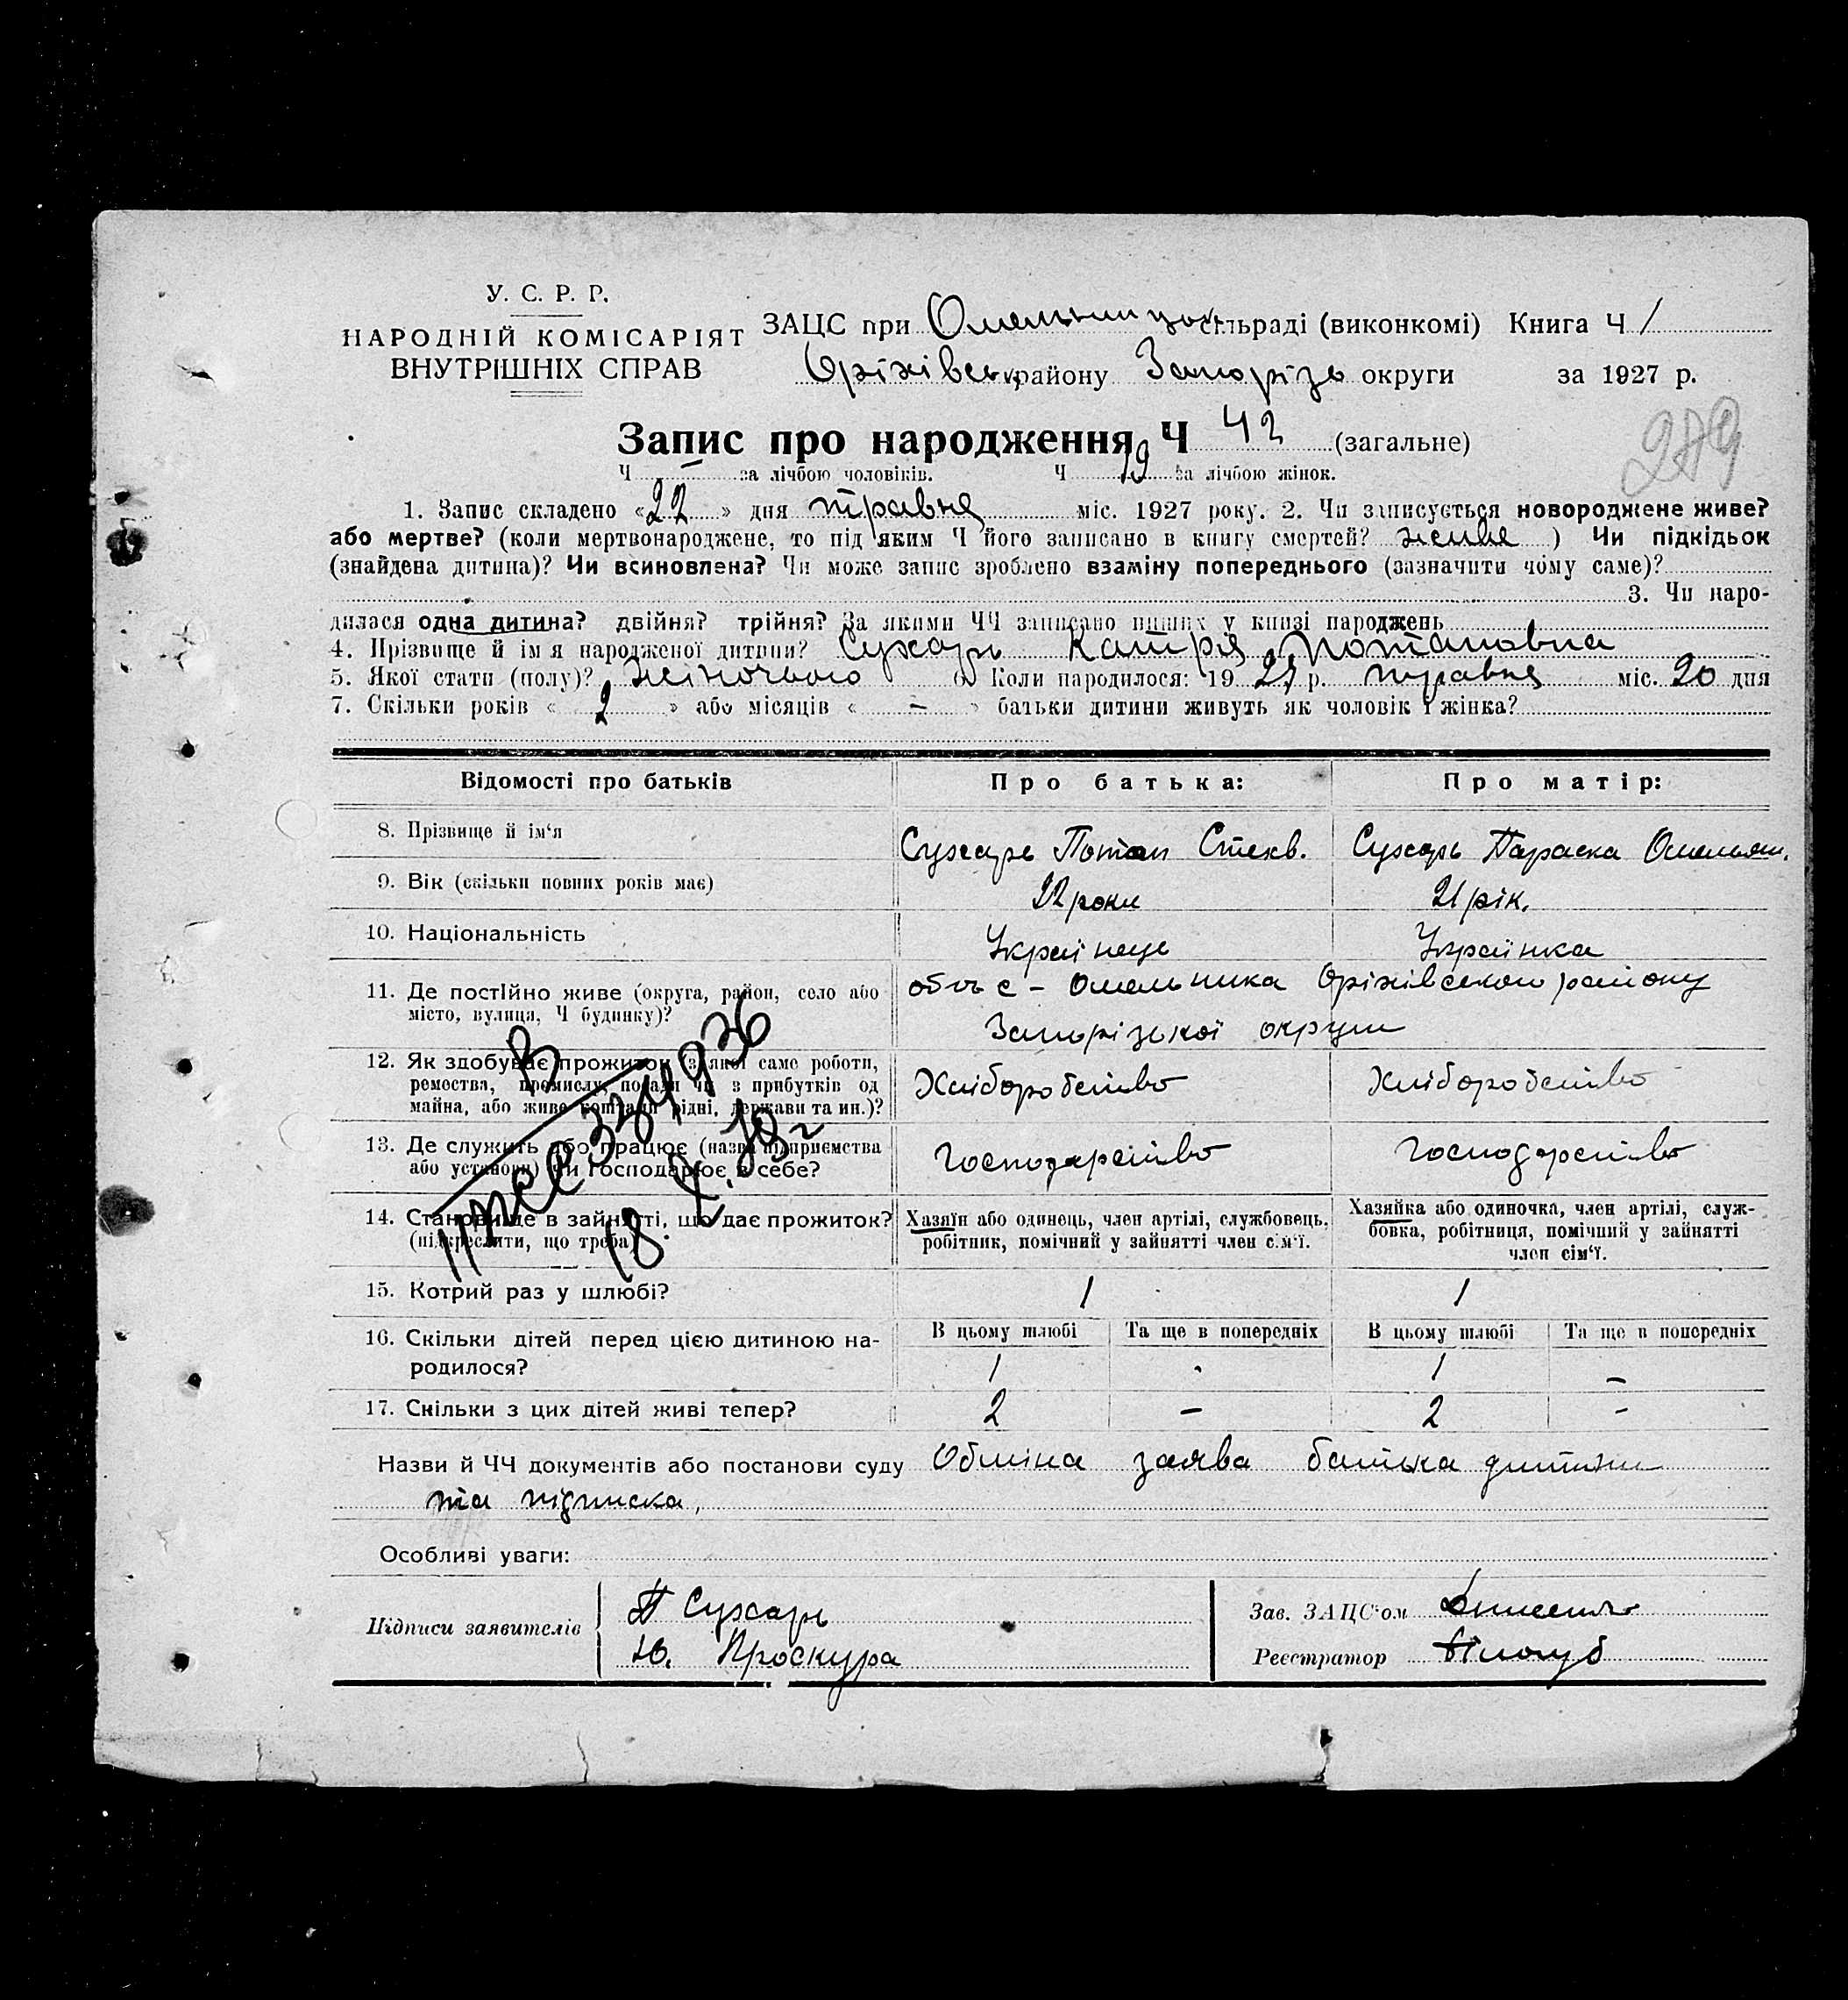 У. С. Р. Р.
НАРОДНІЙ КОМІСАРІЯТ
ВНУТРІШНІХ СПРАВ
ЗАЦС при сільраді (виконкомі) Книга Ч 1
Оріхівськ району Запорізь округи за 1927 р.
289
Запис про народження Ч 42 (загальне)
Ч — за лічбою чоловіків. Ч 19 за лічбою жінок.
1. Запис складено «22» дня травня міс. 1927 року. 2. Чи записується новороджене живе?
або мертве? (коли мертвонароджене, то під яким Ч його записано в книгу смертей? живе ) Чи підкідьок
(знайдена дитина)? Чи всиновлена? Чи може запис зроблено взаміну попереднього (зазначити чому саме)?
3. Чи наро-
дилася одна дитина? двійня? трійня? За якими ЧЧ записано инших у книзі народжень
4. Прізвище й ім'я народженої дитини? Сухарь Катрія Потаповна
5. Якої стати (полу)? жіночього 6. Коли народилося: 1927 р. травня міс. 20 дня
7. Скільки років « 2 » або місяців « – » батьки дитини живуть як чоловік і жінка?
Відомості про батьків Про батька: Про матір:
8. Прізвище й ім'я Сухарь Потап Сухарь Параска Омельян.
9. Вік (скільки повних років має) 22 роки 21 рік.
10. Національність Українець Українка
11. Де постІйно живе (округа, район, село або
місто, вулиця, Ч будинку)?
с – Омельника Оріхівського району
Запорізької округи
12. Як здобуває прожиток (з якої саме роботи,
ремества, промислу, посади чи з прибутків од
майна, або живе коштами рідні, держави та ин.)?
Хліборобство Хліборобство
13. Де служить або працює (назва підприємства
або установи) чи господарює в себе?
Господарство Господарство
14. Становище в зайнятті, що дає прожиток?
(підкреслити, що треба)
Хазяїн або одинець, член артілі, службовець,
робітник, помічний у зайнятті член сім'ї.
Хазяйка або одиночка, член артілі, служ-
бовка, робітниця, помічний у зайнятті
член сім'ї.
15. Котрий раз у шлюбі? 1 1
16. Скільки дітей перед цією дитиною на-
родилося?
В цьому шлюбі Та ще в попередніх В цьому шлюбі Та ще в попередніх
1 - 1 –
17. Скільки з цих дітей живі тепер? 2 – 2 –
Назви й ЧЧ документів або постанови суду заява батька дитини
та підписка,
Особливі уваги:
Підписи заявителів П Сухарь
Ю. Проскура
Зав. ЗАЦС'ом
Реєстратор Білоуб